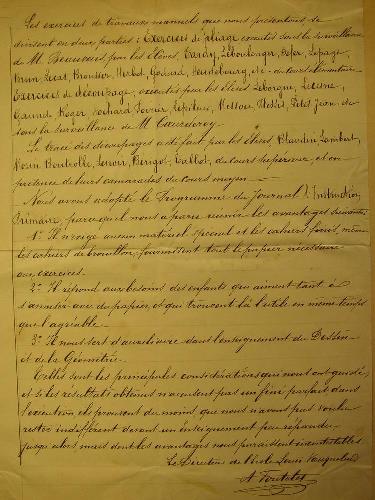 Les exercices de travaux manuels que nous présentons, se
divisent en deux parties : Exercices de pliage exécutés sous la surveillance
de M. par les élèves, Tardy, Leboulenger, Defer, Lepage,
Brun, Lecat, Brousson, Herbel, Godard, Heudebourg, etc - du cours élémentaire
Exercices de découpage, exécutés par les élèves Leborgne,
Roger, Cochard, Février, Petit Jean, etc
sous la surveillance de M.
Le tracé des découpages a été fait par les élèves, Blaudin, Lambert,
Lenoir, Talbot, du cours supérieur, et en
présence de leurs camarades du cours moyen.
Nous avons adopté le Programme du Journal l'Instruction
Primaire, parce qu'il nous a paru réunir les avantages suivants :
1° Il n'exige aucun matériel spécial et les cahiers finis, même
les cahiers de brouillon, fournissent tout le papier nécessaire
aux exercices.
2° Il répond aux besoins des enfants qui aiment tant à
s'amuser avec du papier, et qui trouvent là l'utile en même temps
que l'agréable.
3° Il nous sert d'auxiliaire dans l'enseignement du Dessin
et de la Géométrie.
Telles sont les principales considérations qui nous ont guidés,
et si les résultats obtenus n'accusent pas un fini parfait dans
l'exécution ils prouvent du moins que nous n'avons pas voulu
rester indifférent devant un enseignement peu répandu
jusqu'alors mais dont les avantages nous paraissent incontestables.
Le Directeur de l'école Louis Vauquelin